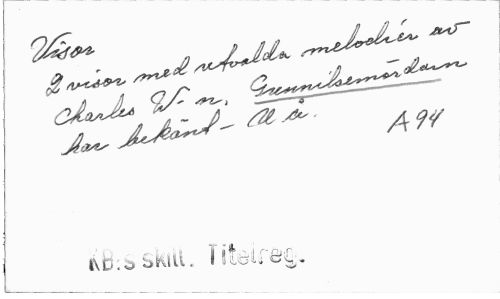 Visor
2 visor med utvalda melodiér av
Charles W-n. Grennilsemördarn
har bekänt - U å.
A 94
KB:s skill. Titelreg.